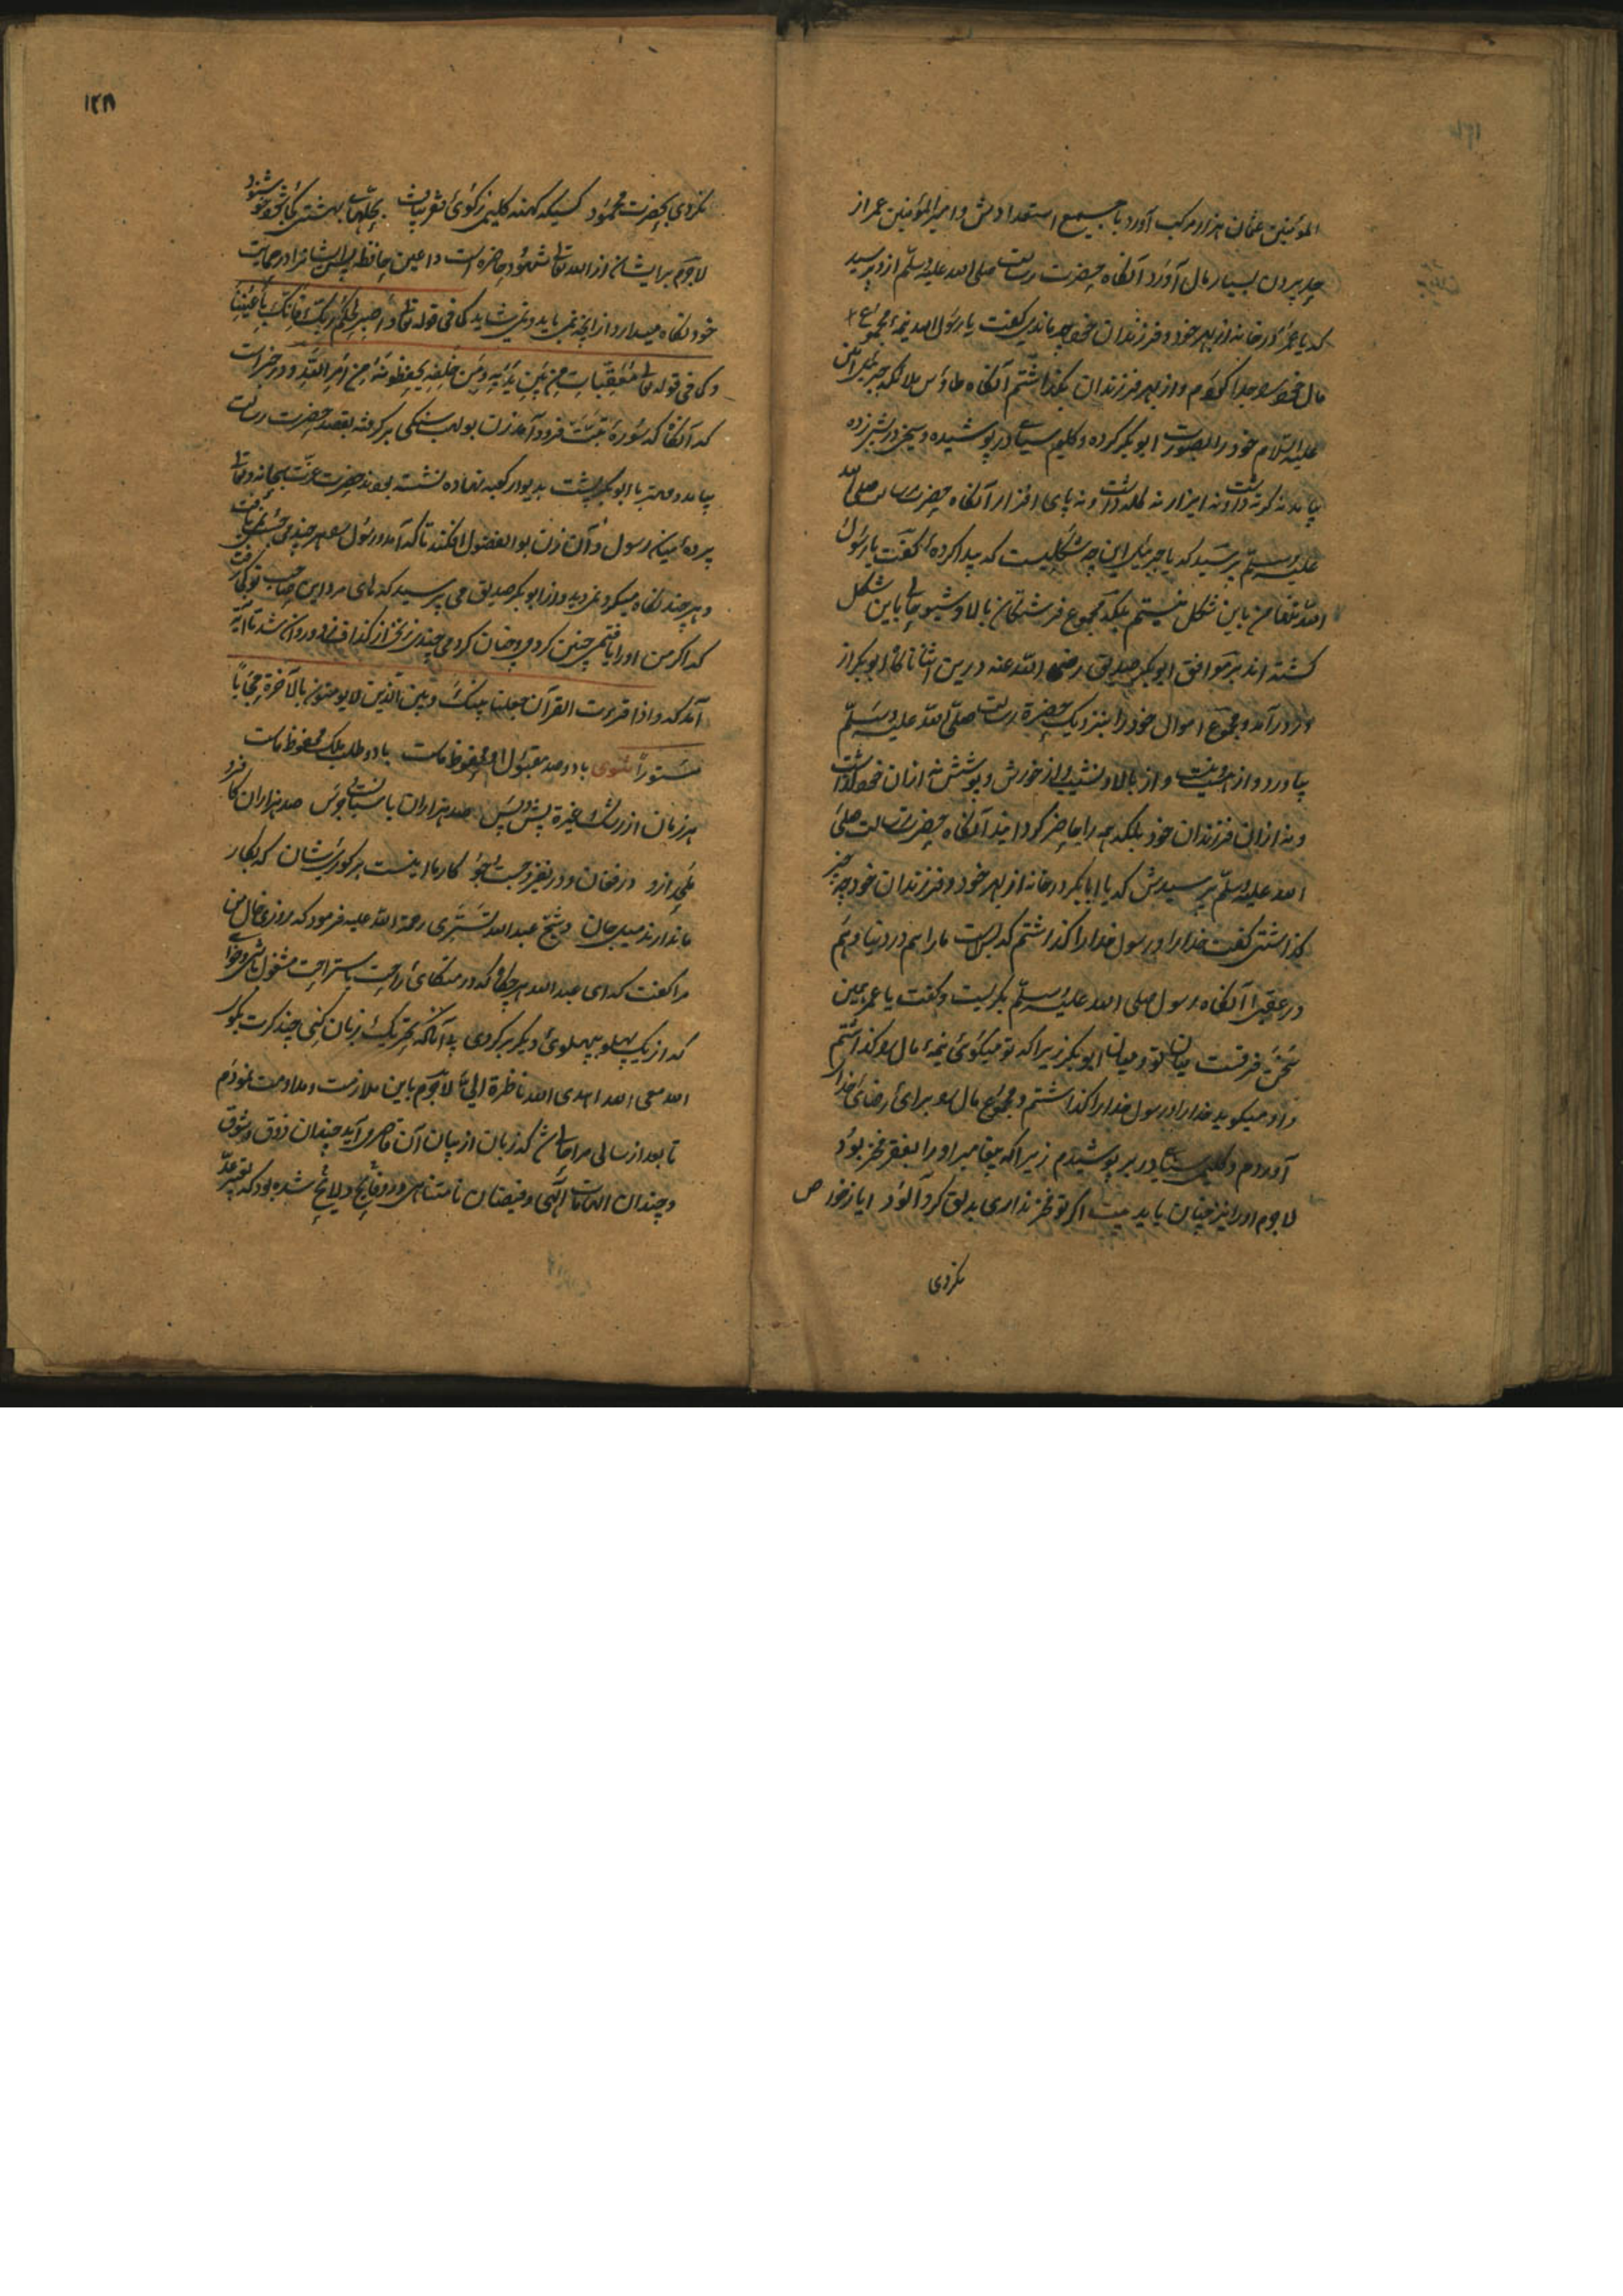 المؤمنین عثمان هزار مرکب آورد با جمیع استعدادش و امیر المؤمنین عمر از
حد بیرون بسیار مال آورد آنکاه حضرت رسالت صلی الله علیه وسلم ازو پرسید
که یا عمر در خانه از بهر خود و فرزندان خود چه ماندی کفت یا رسول الله نیمهٔ مجموع
مال خود جدا کردم و از بهر فرزندان بگذاشتم آنکاه طاؤس ملائکه جبرئیل امین
علیه السلام خود را بصورت ابو بکر کرده و کلیم سیاه در پوشیده و سیخی در بسر زده
بیامد نه کرته داشت و نه ایزار نه کله داشت و نه پای افزار آنکاه حضرت رسالت صلی الله
علیه وسلم پرسید که یا جبرئیل این چه شکلیست که پیدا کردهٔ کفت یا رسول
الله تنها من باین شکل نیستم بلکه مجموع فرشتکان بالا و شیو باین شکل
کشته اند بر موافق ابو بکر صدیق رضی الله عنه درین اثنا ناکاه ابو بکر از
در درآمد و مجموع اموال خود را بنزدیک حضرة رسالت صلی الله علیه وسلم
بیاورد و از هشت و از بالا و نشیب و از خورش و پوشش نه ازان خود داشت
و نه ازان فرزندان خود بلکه همه را حاضر کردانید آنکاه حضرت رسالت صلی
الله علیه وسلم پرسیدش که یا ابا بکر در خانه از بهر خود و فرزندان خود چه چیز
کذاشتی کفت خدا را و رسول خدا را کذاشتم که بس است ما را هم در دنیا و هم
در عقبی آنکاه رسول صلی الله علیه وسلم بکریست و کفت یا عمر همین
سخن فرقست میان تو و میان ابو بکر زیرا که تو میکوئی نیمهٔ مال کذاشتم
و او میکوید خدا را و رسول خدا را کذاشتم و مجموع مال برای رضای خدا
آوردم و کلیم سیاه در بر پوشیدم زیرا که پیغامبر او را بفقر فخر بود
لاجرم او را نیز چنان باید بیت اکر تو فخر نداری بدلق کرد آلود ایاز خو
نکردی
۱۲۸
نکردی بحضرت محمود کسیکه کهنه کلیمی ز کوئ فقر یافت بحلهاء بهشتی کجا شود خوشنود
لاجرم برایشان از الله تعالی شهود حاضره است و اعین حافظه پس ایشانرا در حمایت
خود نکاه میدارد از انچه نمی باید و نمی شاید کما فی قوله تعالی واصبر لحکم ربک فانک باعیننا
و کما فی قوله تعالی معقبات من بین یدیه ومن خلفه یحفظونه من امر الله و در خبر است
که آنکاه که سورهٔ تبت فرود آمد زن بولهب سنکی برکرفته بقصد حضرت رسالت
بیامد و مهتر با ابوبکر پشت بدیوار کعبه نهاده نشسته بودند حضرت عزت سبحانه و تعالی
پردهٔ میان رسول و آن زن بوالفضول افکند تا که آمد و رسول هر چند می جست نمی یافت
و هر چند نکاه میکرد نمی دید و از ابو بکر صدیق می پرسید که های مرد این صاحب تو کجا رفت
که اکر من او را یافتمی چنین کردمی و چنان کردمی چندی نیز از کذاف زد و روان شد تا آیه
آمد که واذا قرءت القرآن جعلنا بینک وبین الذین لا یؤمنون بالآخرة حجابا
مستورا مثنوی باد و صد مقبول او محفوظ ماست باد و طلب بلک محفوظ ماست
هر زمان از رشک غیرة پیش و پس صد هزاران پاسبانست و عسس صد هزاران کافرند
ملحد ازو در فغان و در نفیر و جست و جو کار ما اینست بر کوری شان که بکار
ما ندارند میل جان و شیخ عبد الله تستری رحمة الله علیه فرمود که روزی خال من
مرا کفت که ای عبد الله هر جکاه که در متکای راحت باستراحت مشغول باشی و خواهی
که از یک پهلو بپهلوی دیکر برکردی بی آنکه تحریک زبان کنی چند کرت بکو
الله معی الله شاهدی الله ناظرة الی لاجرم باین ملازمت و مداومت نمودم
تا بعد از سالی مرا حاصل شد که زبان از بیان آن قاصر می آید چندان ذوق و شوق
و چندان الهامات الهی و فیضان نامتناهی در و فایح و لایح شده بود که بتقریر